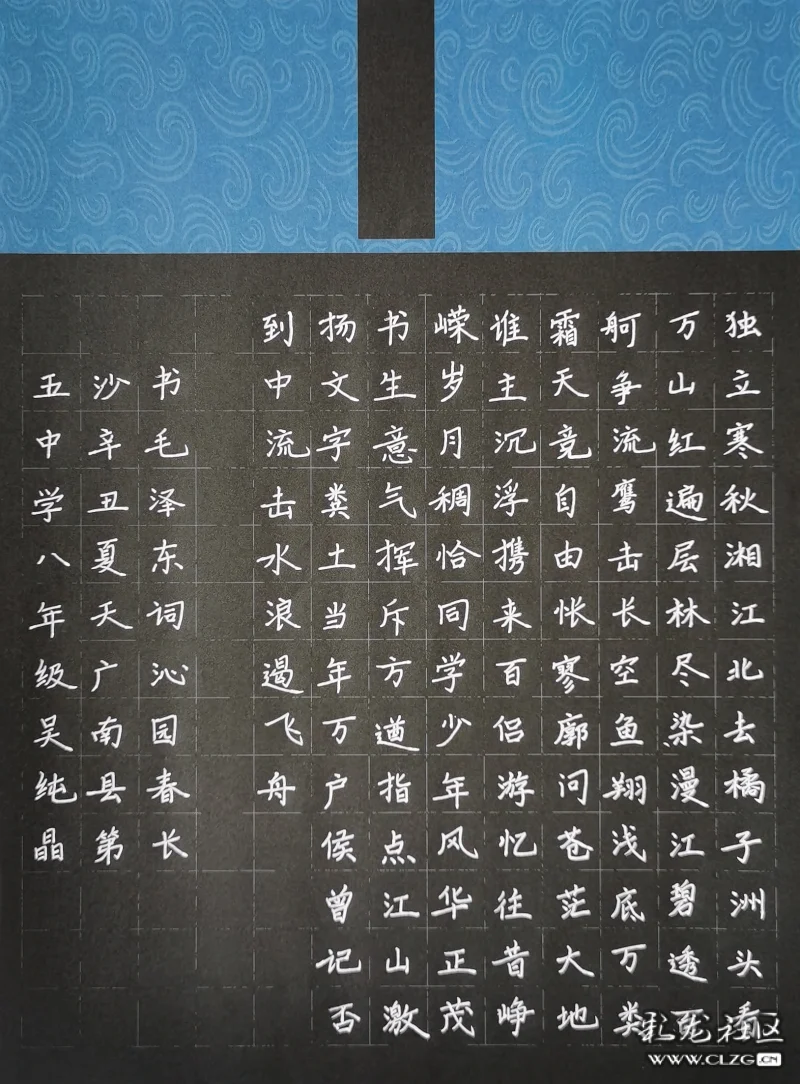 独立寒秋湘江北去橘子洲头看
万山红遍层林尽染漫江碧透百
舸争流鹰击长空鱼翔浅底万类
霜天竞自由怅寥廓问苍茫大地
谁主沉浮携来百侣游忆往昔峥
嵘岁月稠恰同学少年风华正茂
书生意气挥斥方遒指点江山激
扬文字粪土当年万户侯曾记否
到中流击水浪遏飞舟
书毛泽东词沁园春长
沙辛丑夏天广南县第
五中学八年级吴纯晶
彩龙社区
WWW.CLZG.CN